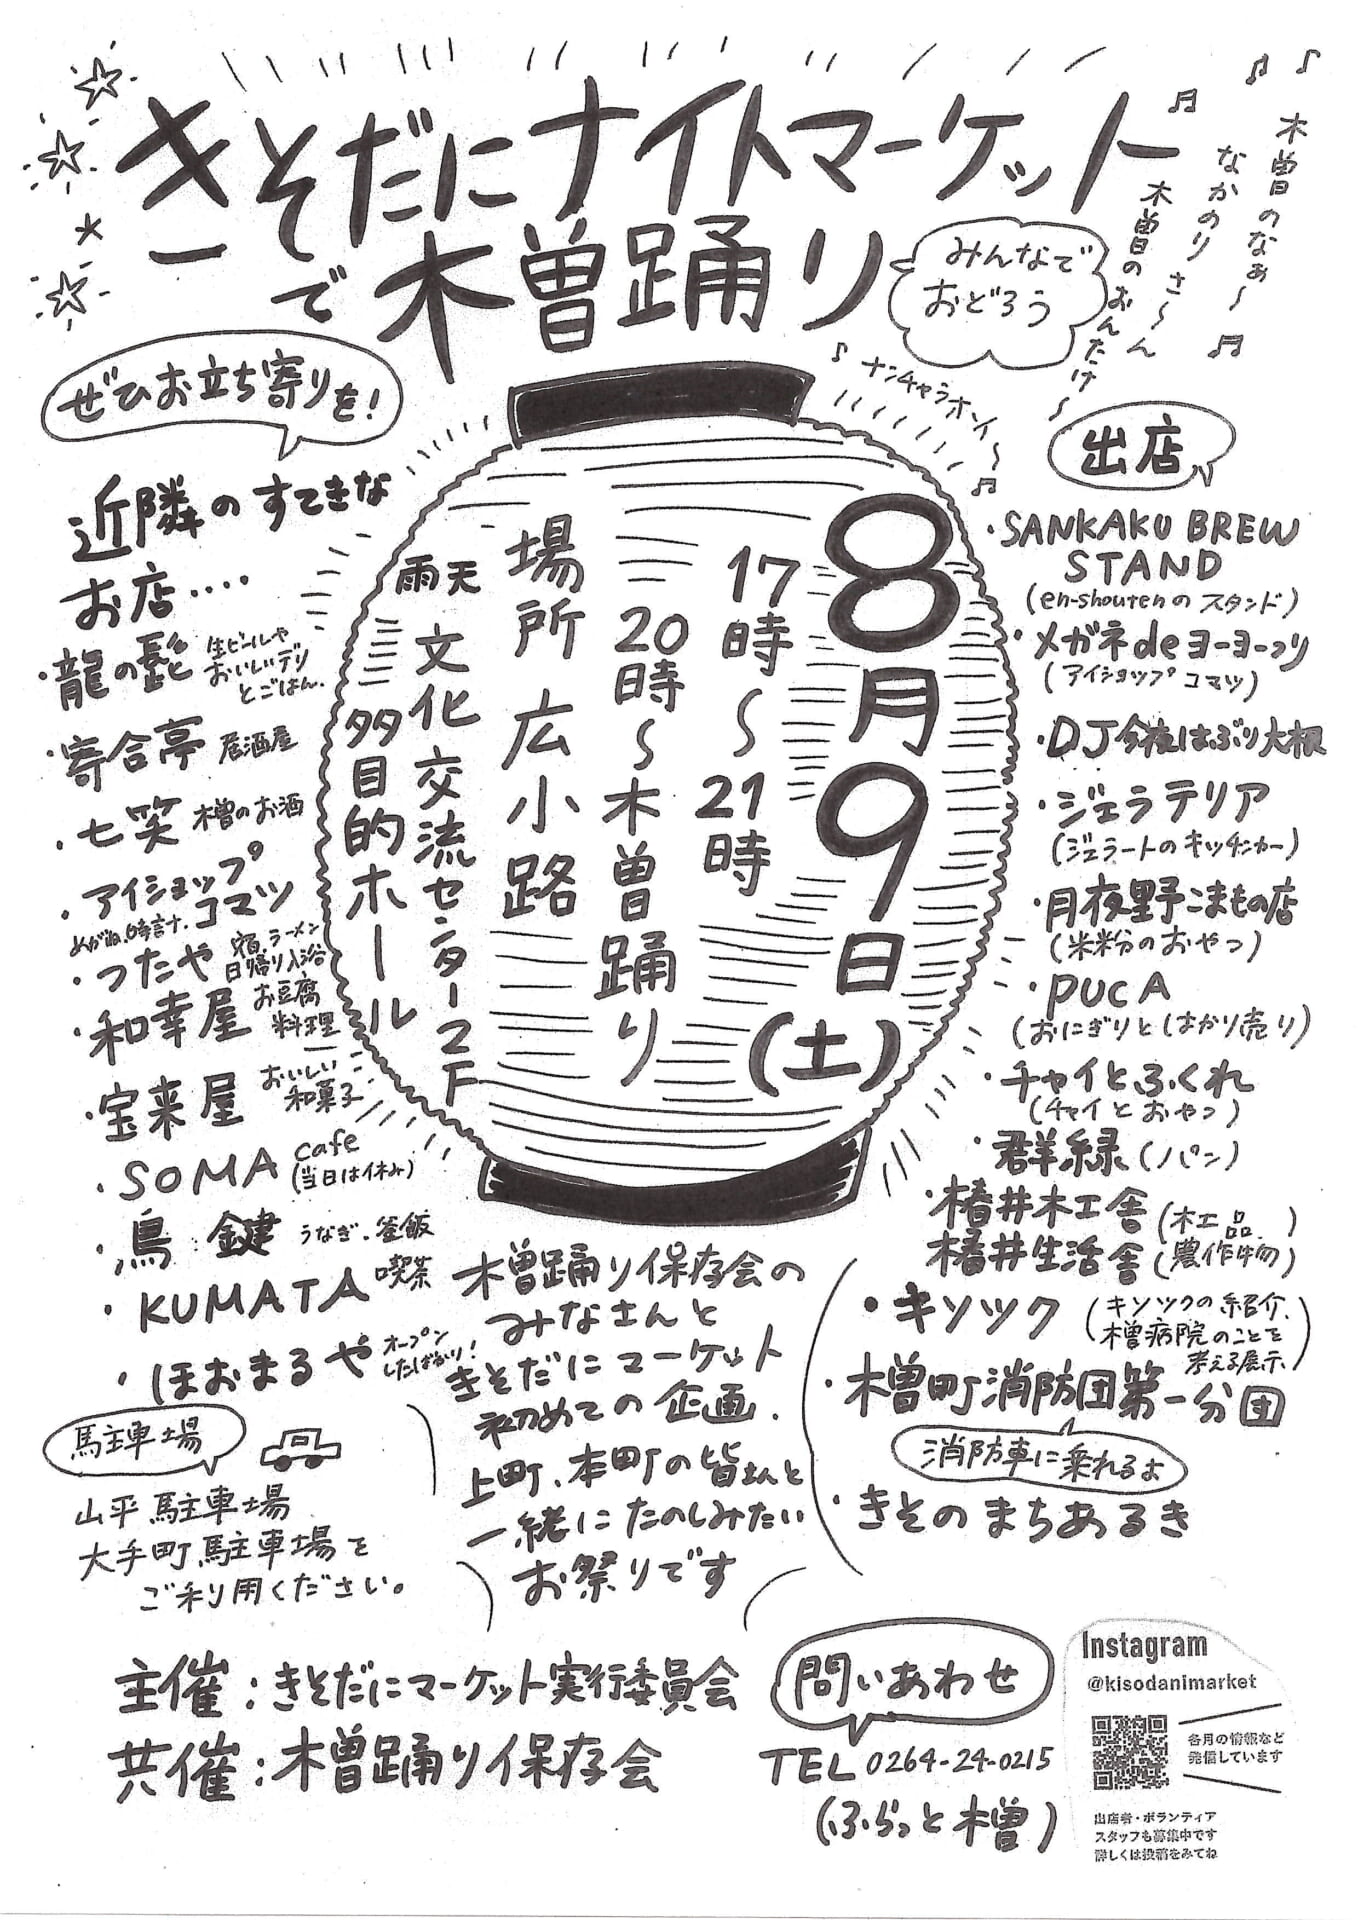 きそだにナイトマーケット
で木曽踊り
みんなで
おどろう
木曽のなぁ〜
なかのりさ〜ん
木曽のおんたけ〜
ナンチャラホイ〜
ぜひお立ち寄りを！
近隣のすてきな
お店‥‥
・龍の髭 生ビールや
おいしいデリ
とごはん.
・寄合亭 居酒屋
・七笑 木曽のお酒
・アイショップ
コマツ
めがね、時計.
・つたや 宿、ラーメン
日帰り入浴
・和幸屋 お豆腐
料理
・宝来屋 おいしい
和菓子
・SOMA cafe
(当日は休み)
・鳥 鍵 うなぎ.釜飯
・KUMATA 喫茶
・ほおまるや オープン
したばかり！
駐車場
山平駐車場
大手町駐車場を
ご利用ください。
8月9日(土)
17時〜21時
20時〜木曽踊り
場所 広小路
雨天 文化交流センター2F
多目的ホール
木曽踊り保存会の
みなさんと
きそだにマーケット
初めての企画.
上町、本町の皆さんと
一緒にたのしみたい
お祭りです
出店
・SANKAKU BREW
STAND
(en-shoutenのスタンド)
・メガネdeヨーヨーつり
(アイショップコマツ)
・DJ今夜はぶり大根
・ジェラテリア
(ジェラートのキッチンカー)
・月夜野こまもの店
(米粉のおやつ)
・PUCA
(おにぎりとはかり売り)
・チャイとふくれ
(チャイとおやつ)
・群緑(パン)
・椿井木工舎(木工品)
椿井生活舎(農作物)
・キソツク (キソツクの紹介、
木曽病院のことを
考える展示)
・木曽町消防団第一分団
消防車に乗れるよ
・きそのまちあるき
主催：きそだにマーケット実行委員会
共催：木曽踊り保存会
問いあわせ
TEL 0264-24-0215
(ふらっと木曽)
Instagram
@kisodanimarket
各月の情報など
発信しています
出店者・ボランティア
スタッフも募集中です
詳しくは投稿をみてね